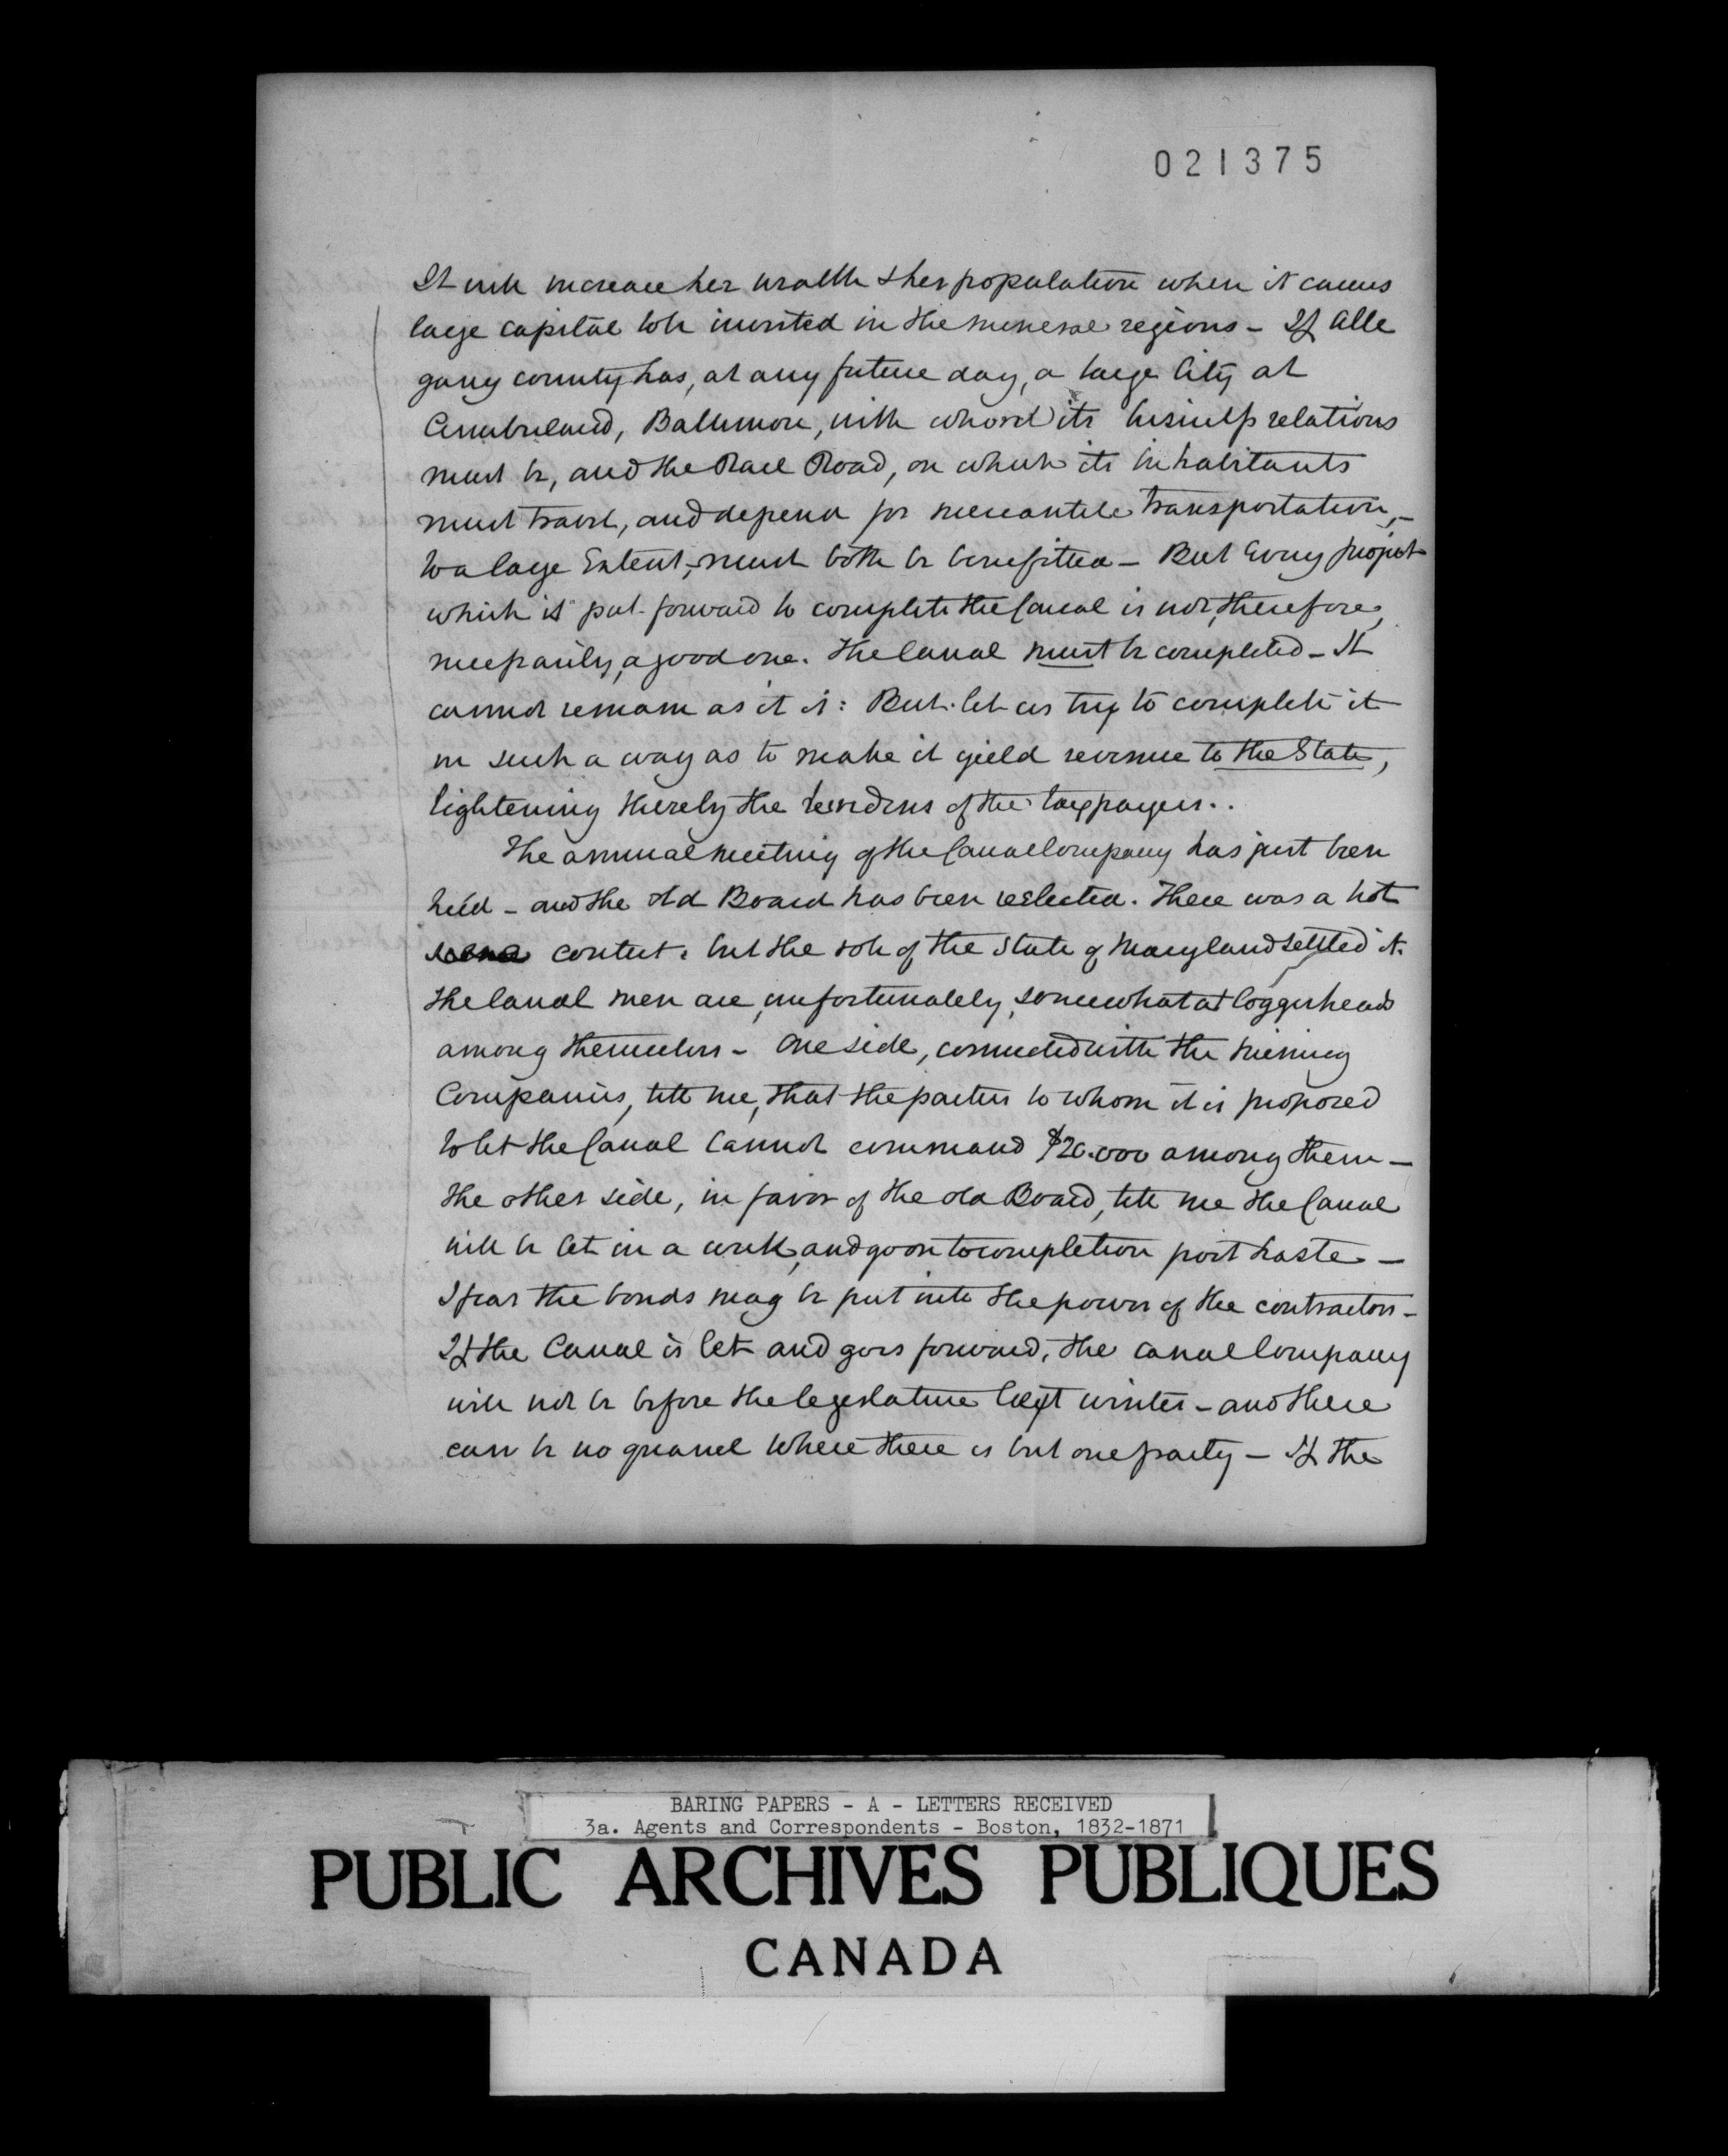 021375
It will increase her wealth & her population when it causes
large capital to be invested in the mineral regions - If Alle
gany county has, at any future day, a large City at
Cumberland, Baltimore, with whom its business relations
must be, and the Rail Road, on which its inhabitants
must travel, and depend for mercantile transportation, -
to a large Extent, must both be benefitted - But Every project
which is put forward to complete the Canal is not, therefore,
necessarily, a good one. The Canal must be completed - It
cannot remain as it is: But let us try to complete it
in such a way as to make it yield revenue to the State,
lightening thereby the burdens of the taxpayers..
The annual meeting of the Canal Company has just been
held - and the old Board has been reelected. There was a hot
contest. but the vote of the State of Maryland settled it.
The Canal men are, unfortunately, somewhat at loggerheads
among themselves - One side, connected with the mining
Companies, tell me, that the parties to whom it is proposed
to let the Canal cannot command $20.000 among them -
The other side, in favor of the old Board, tell me the Canal
will be let in a week, and go on to completion post haste -
I fear the bonds may be put into the power of the contractors -
If the Canal is let and goes forward, the Canal Company
will not be before the legislature next winter - and there
can be no quarrel where there is but one party - If the
BARING PAPERS - A - LETTERS RECEIVED
3a. Agents and Correspondents - Boston, 1832-1871
PUBLIC ARCHIVES PUBLIQUES
CANADA